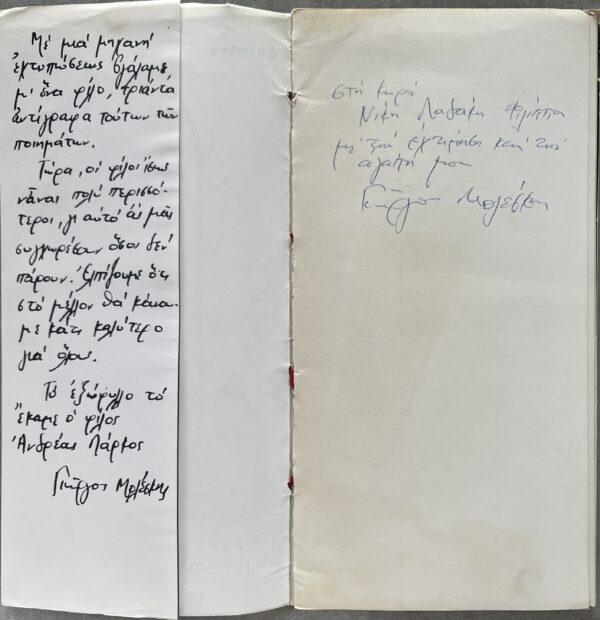 Μέ μιά μηχανή
ἐκτυπώσεως βγάλαμε,
μ' ἕνα φίλο, τριάντα
ἀντίγραφα τούτων τῶν
ποιημάτων.
Τώρα, οἱ φίλοι ἴσως
νἆναι πολύ περισσό-
τεροι, γι αὐτό ἄς μᾶς
συγχωρέσουν ὅσοι δέν
πάρουν. Ἐλπίζουμε ὅτι
στό μέλλον θά κάνου-
με κάτι καλύτερο
γιά ὅλους.
Τό ἐξώφυλλο τό
ἔκαμε ὁ φίλος
Ἀνδρέας Λάρκος
Γιῶργος Μολέσκης
στή κυρά
Νίκη Λαδάκη Φιλίππου
μέ τήν ἐκτίμηση καί τήν
ἀγάπη μου
Γιῶργος Μολέσκης